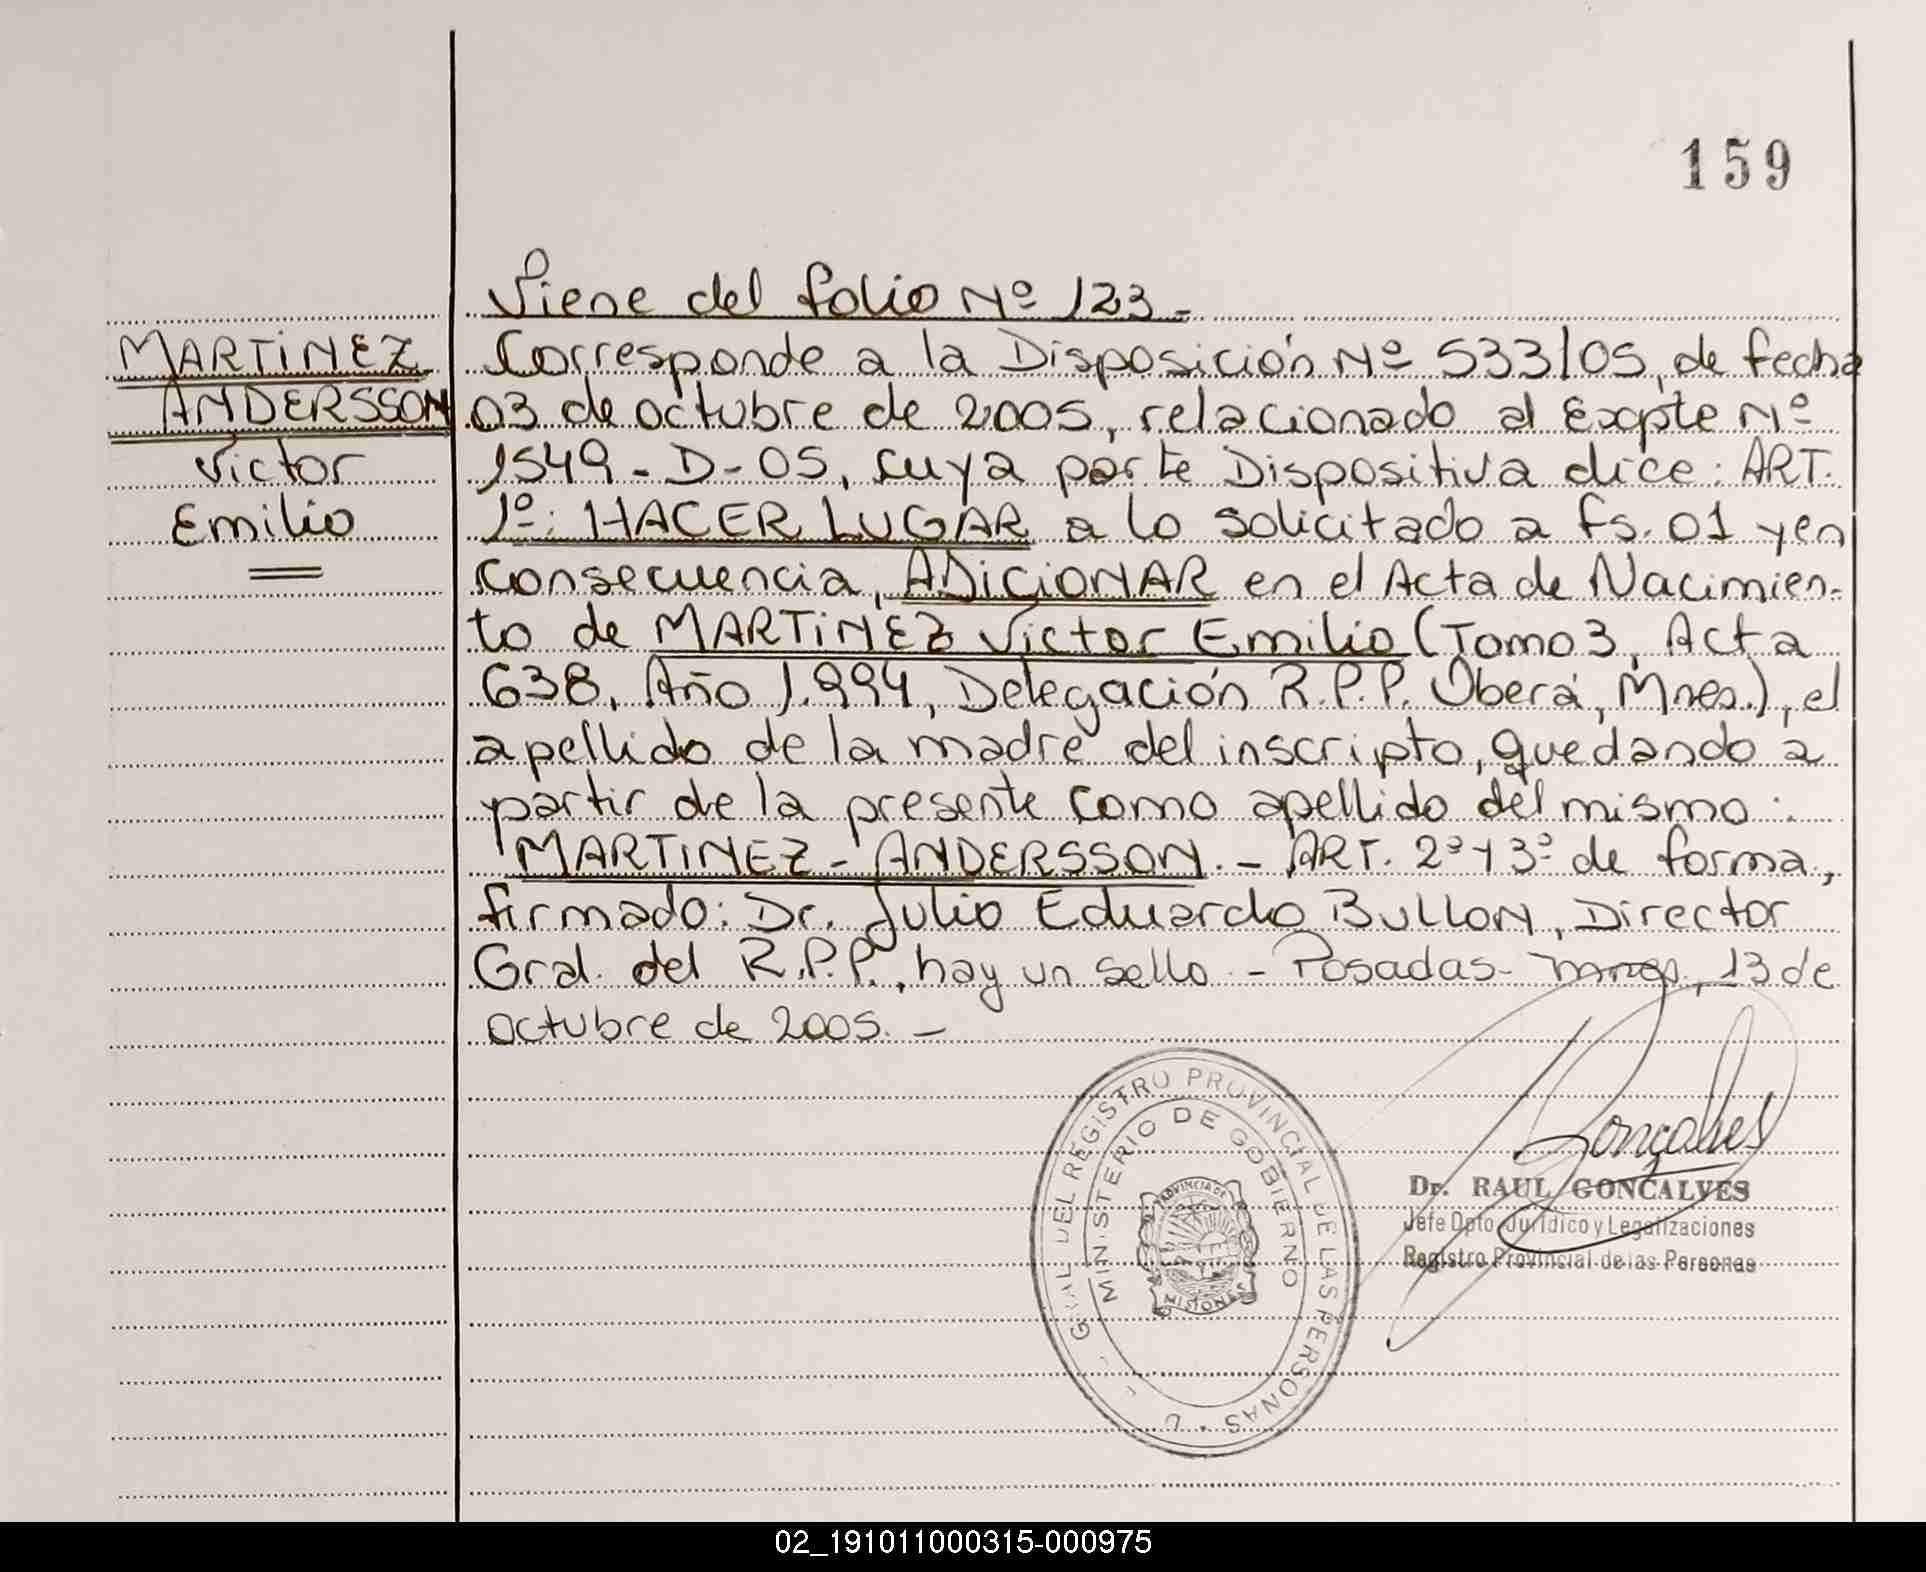 159
Viene del folio Nº 123.-
MARTINEZ
ANDERSSON
Victor
Emilio
Corresponde a la Disposición Nº 533/05, de fecha
03 de octubre de 2005, relacionado al Expte Nº
1549-D-05, cuya parte Dispositiva dice: ART.
1º: HACER LUGAR a lo solicitado a fs. 01 y en
consecuencia, ADICIONAR en el Acta de Nacimien-
to de MARTINEZ Victor Emilio (Tomo 3, Acta
638, Año 1.994, Delegación R.P.P. Oberá, Mnes.), el
apellido de la madre del inscripto, quedando a
partir de la presente como apellido del mismo:
MARTINEZ-ANDERSSON.- ART. 2º y 3º de forma,
firmado: Dr. Julio Eduardo BULLON, Director
Gral. del R.P.P., hay un sello.- Posadas- Mnes., 13 de
octubre de 2005.-
GRAL DEL REGISTRO PROVINCIAL DE LAS PERSONAS
MINISTERIO DE GOBIERNO
PROVINCIA DE
MISIONES
Gonçalves
Dr. RAUL GONCALVES
Jefe Dpto. Jurídico y Legalizaciones
Registro Provincial de las Personas
02_191011000315-000975